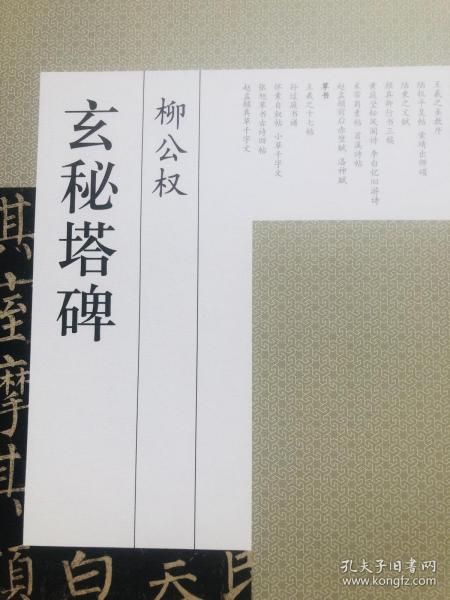 玄秘塔碑
柳公权
王羲之圣教序
陆机平复帖 索靖出师颂
陆柬之文赋
颜真卿行书三稿
黄庭坚松风阁诗 李白忆旧游诗
米芾蜀素帖 苕溪诗帖
赵孟頫前后赤壁赋 洛神赋
草书
王羲之十七帖
孙过庭书谱
怀素自叙帖 小草千字文
张旭草书古诗四帖
赵孟頫真草千字文
其
至
摩
其
顶
白
天
孔夫子旧书网
www.kongfz.com